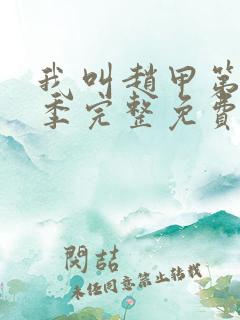 我叫趙甲第
季完整免費
閔喆
未经同意禁止转载